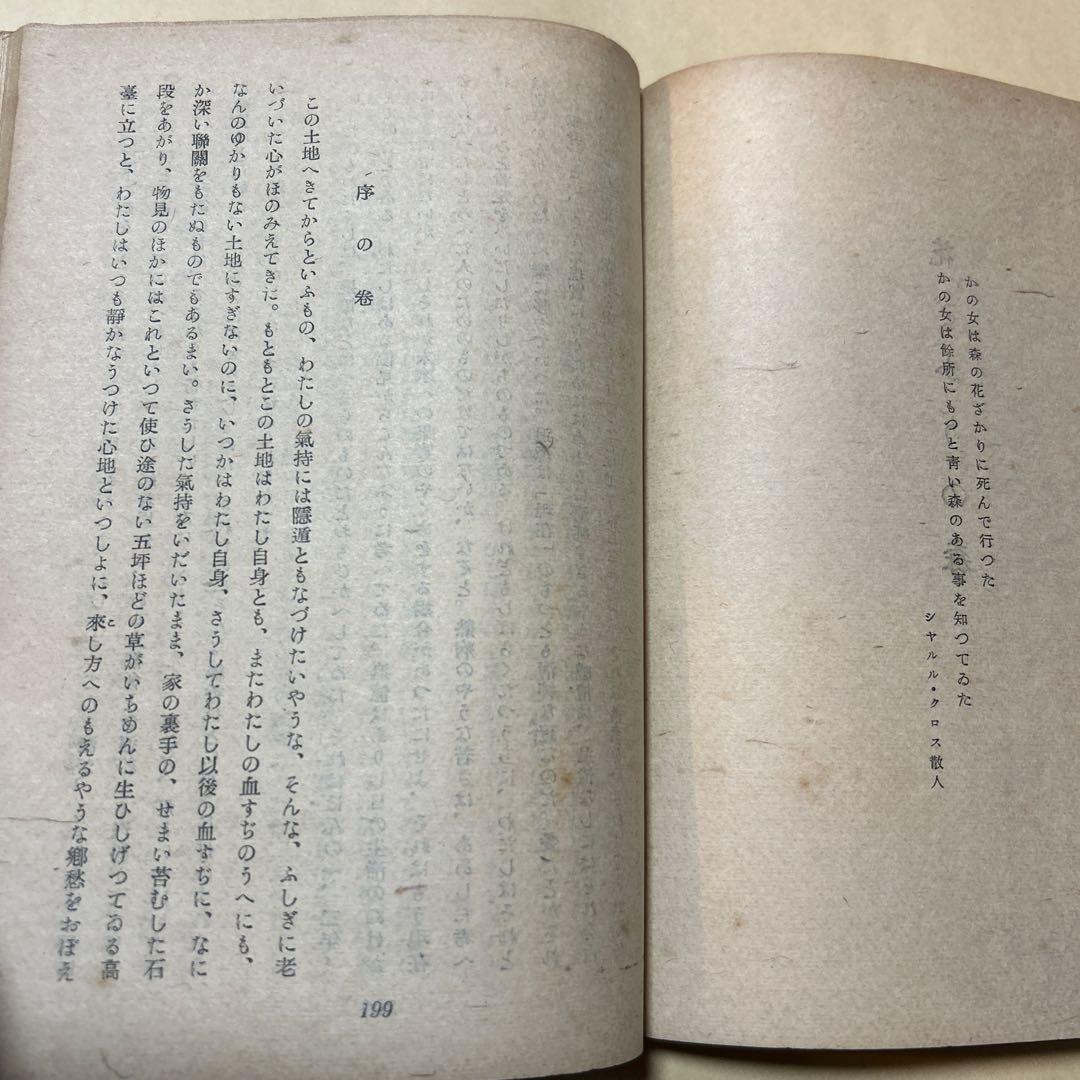 かの女は森の花ざかりに死んで行つた
かの女は餘所にもつと靑い森のある事を知つてゐた
シヤルル・クロス散人
序の卷
この土地へきてからといふもの、わたしの氣持には隱遁ともなづけたいやうな、そんな、ふしぎに老
いづいた心がほのみえてきた。もともとこの土地はわたし自身とも、またわたしの血すぢのうへにも、
なんのゆかりもない土地にすぎないのに、いつかはわたし自身、さうしてわたし以後の血すぢに、なに
か深い聯關をもたぬものでもあるまい。さうした氣持をいだいたまま、家の裏手の、せまい苔むした石
段をあがり、物見のほかにはこれといつて使ひ途のない五坪ほどの草がいちめんに生ひしげつてゐる高
臺に立つと、わたしはいつも靜かなうつけた心地といつしよに、來し方へのもえるやうな鄕愁をおぼえ
こ
199